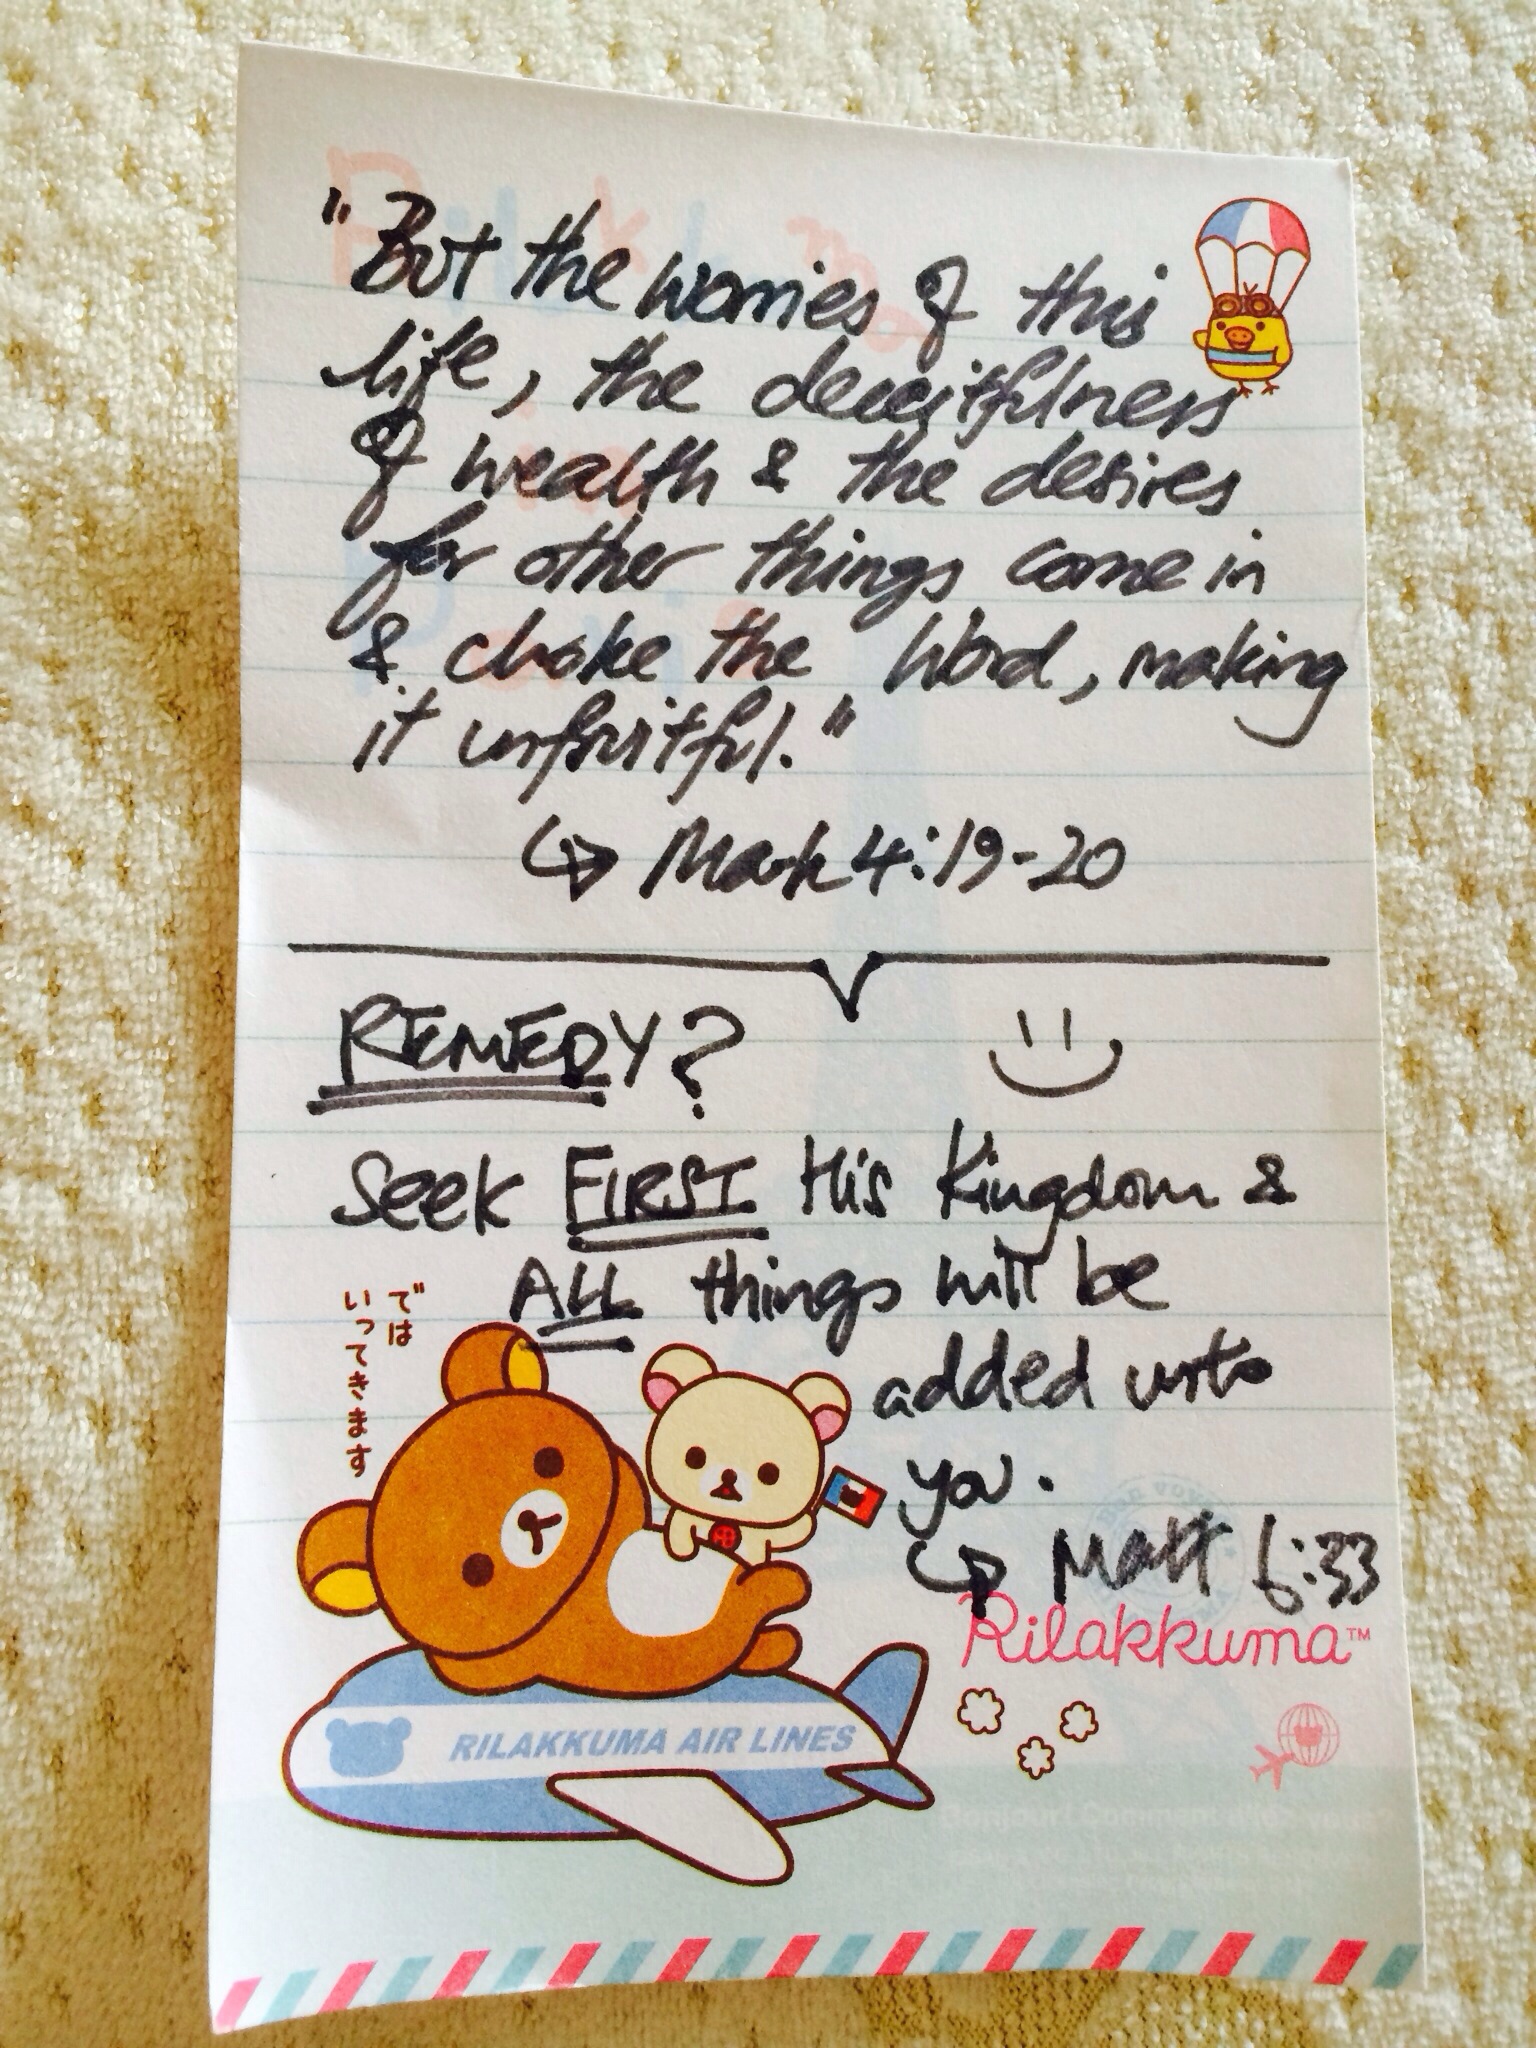 "But the worries of this
life, the deceitfulness
of wealth & the desires
for other things come in
& choke the Word, making
it unfruitful."
↳ Mark 4:19-20
REMEDY?
Seek FIRST His Kingdom &
ALL things will be
added unto
you.
↳ Matt 6:33
では
いってきます
Rilakkuma™
RILAKKUMA AIR LINES